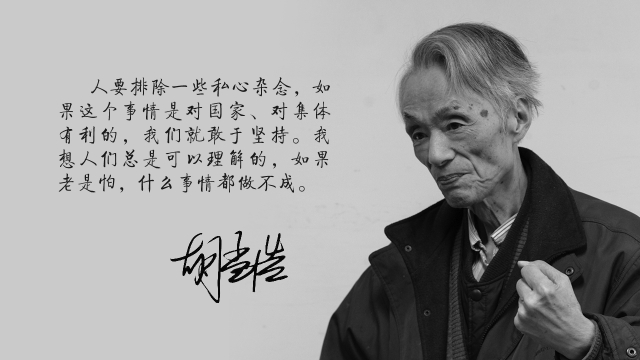 人要排除一些私心杂念，如
果这个事情是对国家、对集体
有利的，我们就敢于坚持。我
想人们总是可以理解的，如果
老是怕，什么事情都做不成。
胡